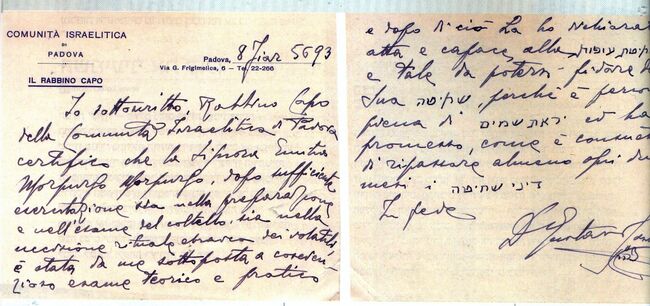 COMUNITÀ ISRAELITICA
DI
PADOVA
IL RABBINO CAPO
Padova, 8 Jiar 5693
Via G. Frigimelica, 6 - Tel. 22-266
Io sottoscritto, Rabbino Capo
della Comunità Israelitica di Padova
certifico che la Signora
Morpurgo Morpurgo, dopo sufficiente
esercitazione sia nella preparazione
e nell'esame del coltello, sia nella
uccisione rituale ebraica dei volatili,
è stata da me sottoposta a coscien-
zioso esame teorico e pratico
e dopo di ciò la ho dichiarata
atta e capace alla שחיטת עופות
e tale da potersi fidare
sua שחיטה, perchè è
piena di יראת שמים ed ha
promesso, come è
di ripassare almeno ogni
mesi i דיני שחיטה
In fede